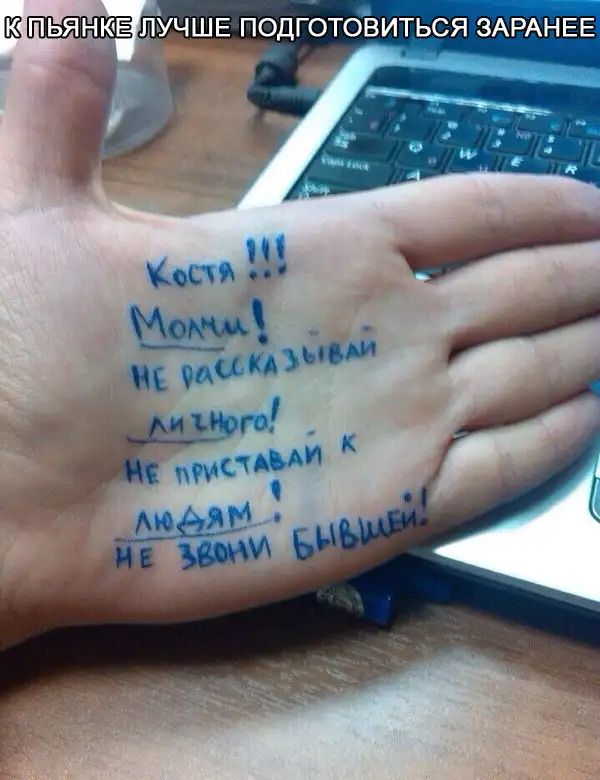 К ПЬЯНКЕ ЛУЧШЕ ПОДГОТОВИТЬСЯ ЗАРАНЕЕ
Костя!!!
Молчи!
НЕ РАССКАЗЫВАЙ
ЛИЧНОГО!
НЕ ПРИСТАВАЙ К
ЛЮДЯМ!
НЕ ЗВОНИ БЫВШЕЙ!
Caps Lock
Q
W
E
R
A